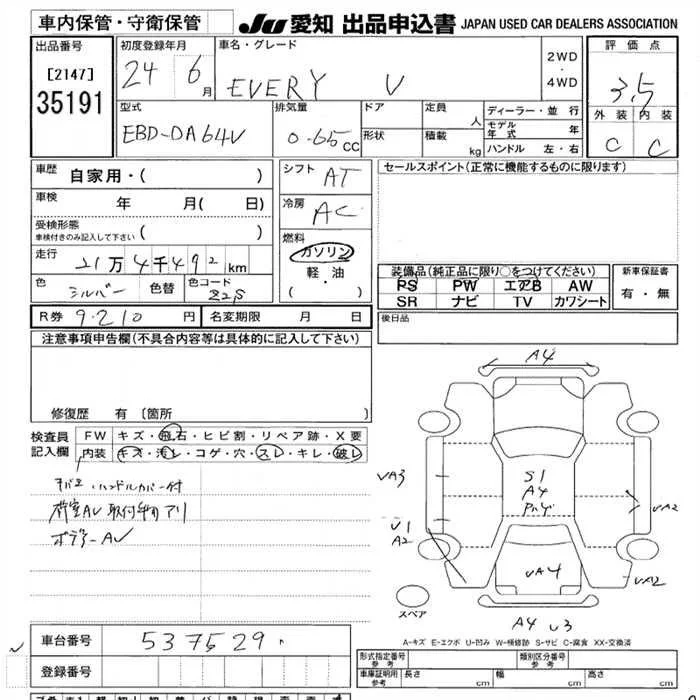 車内保管・守衛保管
JU 愛知 出品申込書 JAPAN USED CAR DEALERS ASSOCIATION
出品番号
[2147]
35191
初度登録年月
24 6月
車名・グレード
EVERY V
2WD
・
4WD
評価点
3.5
外装 内装
C C
型式
EBD-DA64V
排気量
0.65cc
ドア
形状
定員 人
積載 kg
ディーラー・並行
モデル年式 年
ハンドル 左・右
車歴 自家用・( )
車検 年 月( 日)
受検形態
車検付きのみ記入して下さい ( )
走行 21万4千492km
色 シルバー 色替 色コード Z2S
シフト AT
冷房 AC
燃料
ガソリン
軽・油
・( )
セールスポイント(正常に機能するものに限ります)
装備品(純正品に限り○をつけてください)
PS PW エアB AW
SR ナビ TV カワシート
新車保証書
有・無
R券 9210円 名変期限 月 日
後日品
注意事項申告欄(不具合内容等は具体的に記入して下さい)
修復歴 有 〔箇所 〕
検査員記入欄
FW キズ・飛石・ヒビ割・リペア跡・X要
内装 キズ・汚レ・コゲ・穴・スレ・キレ・破レ
ハンドルカバー付
荷室AU 取付 アリ
ボデーAU
A4
UA3
U1
A2
S1
A4
UA2
UA2
UA4
スペア
A4 U3
A-キズ E-エクボ U-凹み W-補修跡 S-サビ C-腐食 XX-交換済
車台番号 537529
登録番号
形式指定番号 参考
類別区分番号 参考
車庫証明用 参考 長さ cm 幅 cm 高さ cm